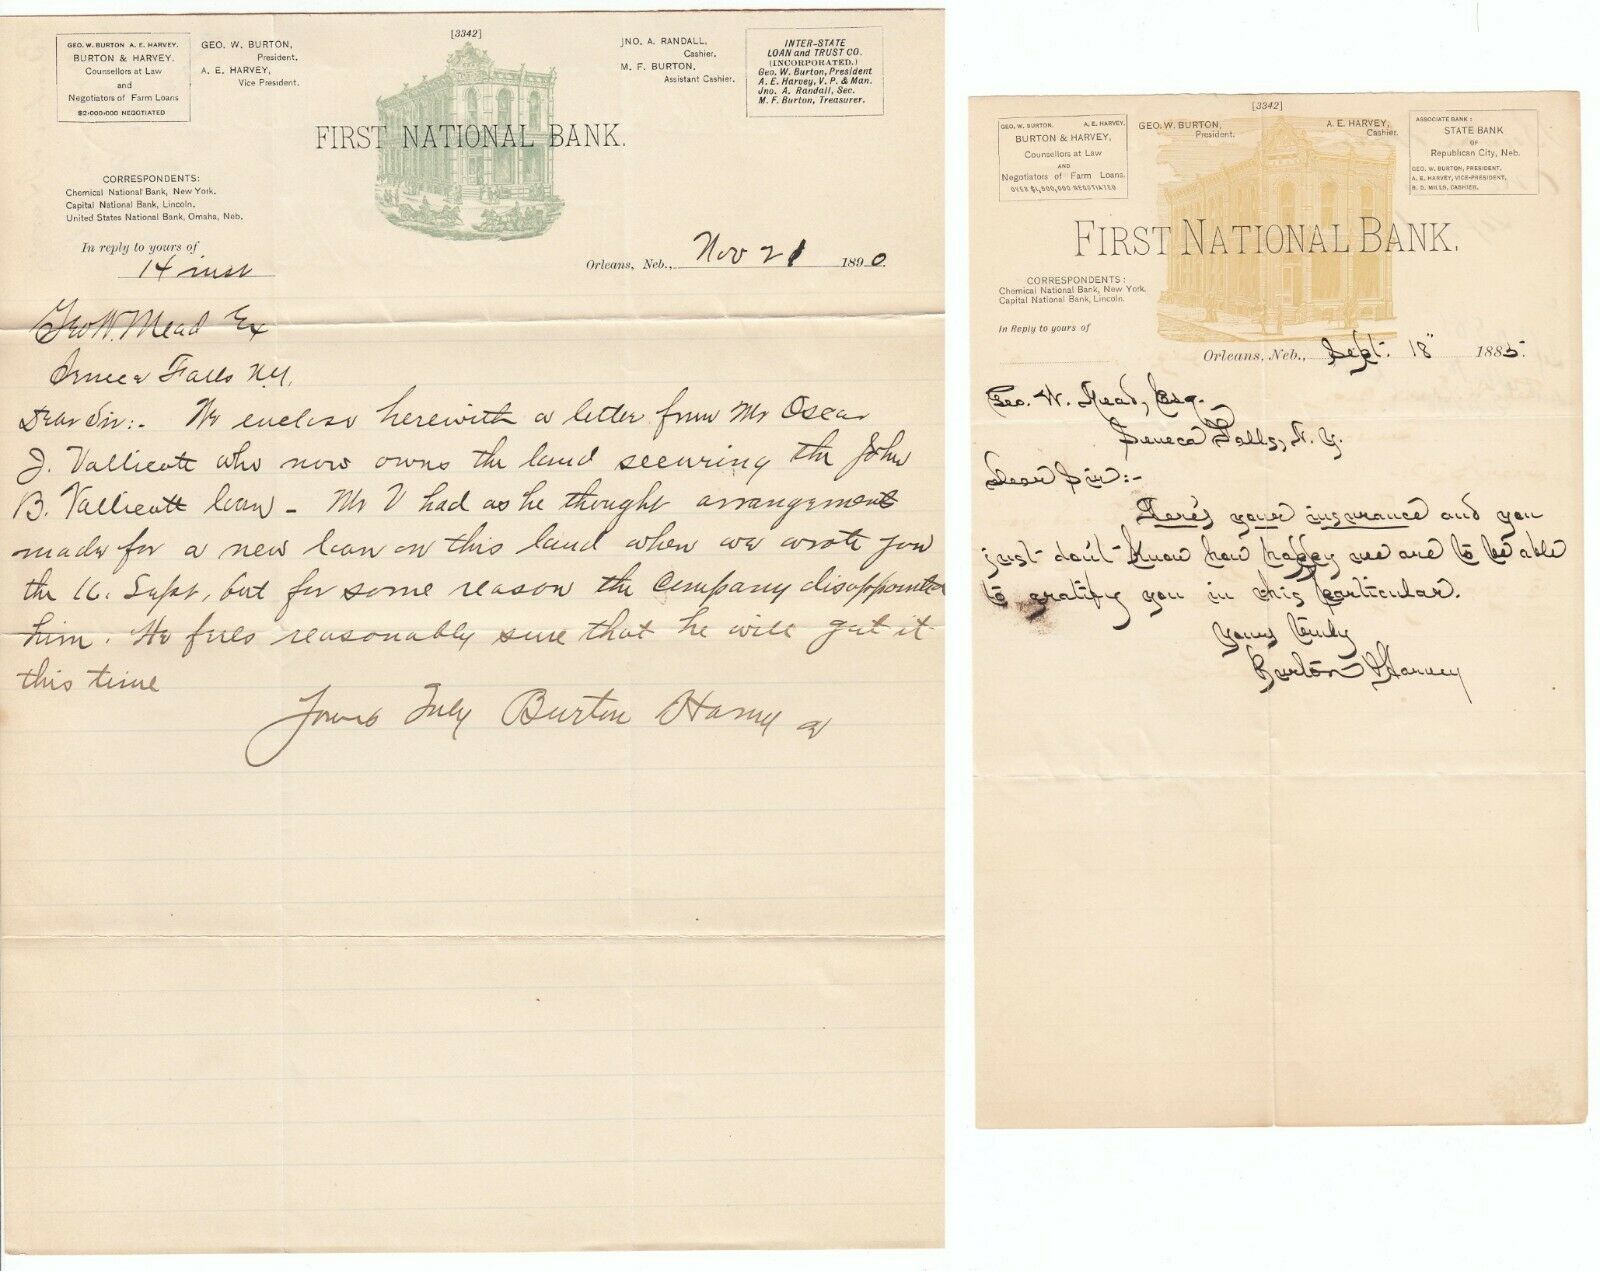 [3342]
GEO. W. BURTON A. E. HARVEY.
BURTON & HARVEY.
Counsellors at Law
and
Negotiators of Farm Loans
$2.000.000 NEGOTIATED
GEO. W. BURTON,
President.
A. E. HARVEY,
Vice President.
JNO. A. RANDALL,
Cashier.
M. F. BURTON,
Assistant Cashier.
INTER-STATE
LOAN and TRUST CO.
(INCORPORATED.)
Geo. W. Burton, President
A. E. Harvey, V. P. & Man.
Jno. A. Randall, Sec.
M. F. Burton, Treasurer.
FIRST NATIONAL BANK.
CORRESPONDENTS:
Chemical National Bank, New York.
Capital National Bank, Lincoln.
United States National Bank, Omaha, Neb.
In reply to yours of
14 inst
Orleans, Neb., Nov 21 1890.
Geo W. Mead
Seneca Falls N.Y.
Dear Sir:- We enclose herewith a letter from Mr Oscar
J. Vallicott who now owns the land securing the John
B. Vallicott loan - Mr V had as he thought arrangements
made for a new loan on this land when we wrote you
the 16. Sept, but for some reason the Company disappointed
him. He feels reasonably sure that he will get it
this time
Yours Truly Burton & Harvey
[3342]
GEO. W. BURTON. A. E. HARVEY.
BURTON & HARVEY,
Counsellors at Law
AND
Negotiators of Farm Loans.
OVER $1,500,000 NEGOTIATED
GEO. W. BURTON,
President.
A. E. HARVEY,
Cashier.
ASSOCIATE BANK:
STATE BANK
OF
Republican City, Neb.
GEO. W. BURTON, PRESIDENT.
A. E. HARVEY, VICE-PRESIDENT,
B. D. MILLS, CASHIER.
FIRST NATIONAL BANK.
CORRESPONDENTS:
Chemical National Bank, New York.
Capital National Bank, Lincoln.
In Reply to yours of
Orleans, Neb., Sept. 18" 1885.
Geo. W. Mead, Esq.
Seneca Falls, N. Y.
Dear Sir:-
Here's your insurance and you
just don't know how happy we are to be able
to gratify you in this particular.
Yours truly
Burton & Harvey